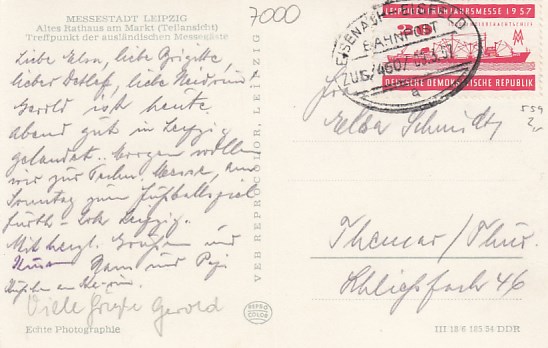 MESSESTADT LEIPZIG
Altes Rathaus am Markt (Teilansicht)
Treffpunkt der ausländischen Messegäste
7000
Liebe Elsa, liebe Brigitte,
lieber Detlef, liebe
Gerold ist heute
Abend gut in Leipzig
gelandet. Morgen wollen
wir zur Techn. Messe, am
Sonntag zum Fußballspiel
Fürth - Lok Leipzig.
Mit herzl. Grüßen
und
Viele Grüße Gerold
Echte Photographie
VEB REPROCOLOR, LEIPZIG
REPRO COLOR
LEIPZIGER FRÜHJAHRSMESSE 1957
20
DEUTSCHE DEMOKRATISCHE REPUBLIK
BAHNPOST
ZUG
Elsa Schmidt
Themar/Thür.
Schließfach 46
III 18/6 185 54 DDR